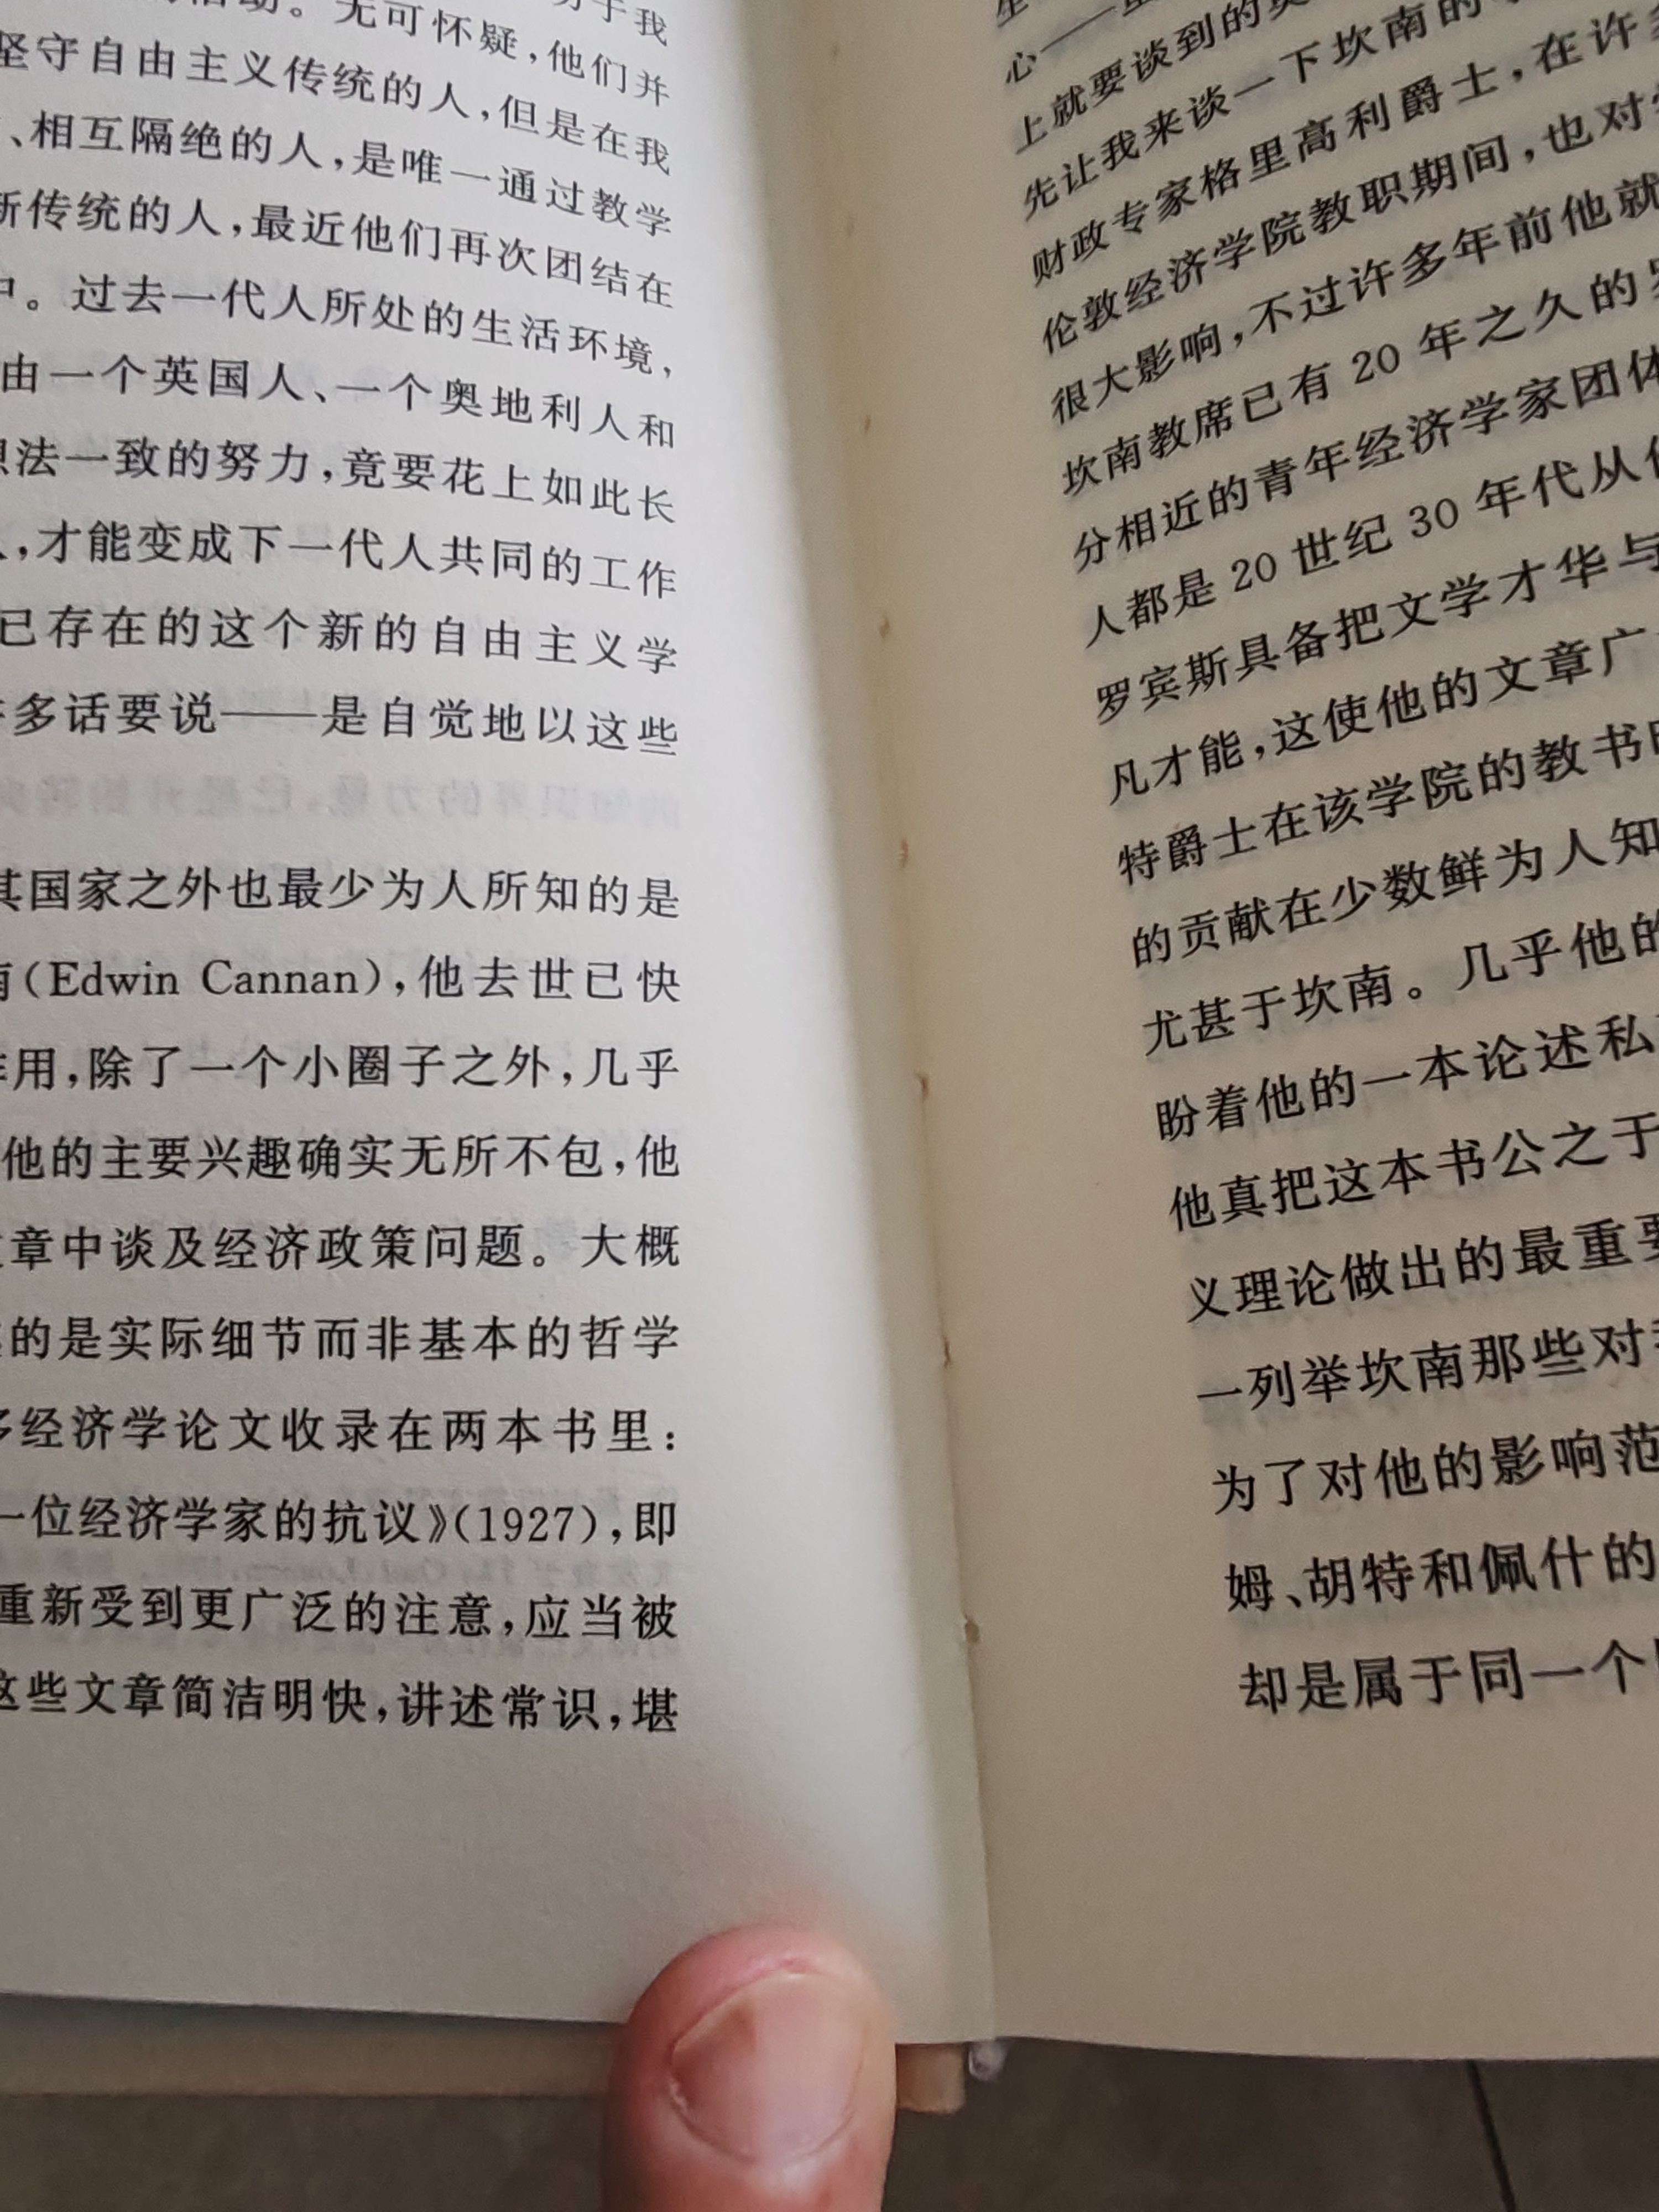 活动。无可怀疑,他们并
坚守自由主义传统的人,但是在我
、相互隔绝的人,是唯一通过教学
新传统的人,最近他们再次团结在
中。过去一代人所处的生活环境,
由一个英国人、一个奥地利人和
想法一致的努力,竟要花上如此长
,才能变成下一代人共同的工作
已存在的这个新的自由主义学
多话要说——是自觉地以这些
其国家之外也最少为人所知的是
南(Edwin Cannan),他去世已快
作用,除了一个小圈子之外,几乎
他的主要兴趣确实无所不包,他
文章中谈及经济政策问题。大概
的是实际细节而非基本的哲学
多经济学论文收录在两本书里:
一位经济学家的抗议》(1927),即
重新受到更广泛的注意,应当被
这些文章简洁明快,讲述常识,堪
心——
上就要谈到的
先让我来谈一下坎南的
财政专家格里高利爵士,在许
伦敦经济学院教职期间,也对
很大影响,不过许多年前他就
坎南教席已有 20 年之久的
分相近的青年经济学家团体
人都是 20 世纪 30 年代从
罗宾斯具备把文学才华与
凡才能,这使他的文章广
特爵士在该学院的教书
的贡献在少数鲜为人知
尤甚于坎南。几乎他的
盼着他的一本论述私
他真把这本书公之于
义理论做出的最重要
一列举坎南那些对
为了对他的影响范
姆、胡特和佩什的
却是属于同一个